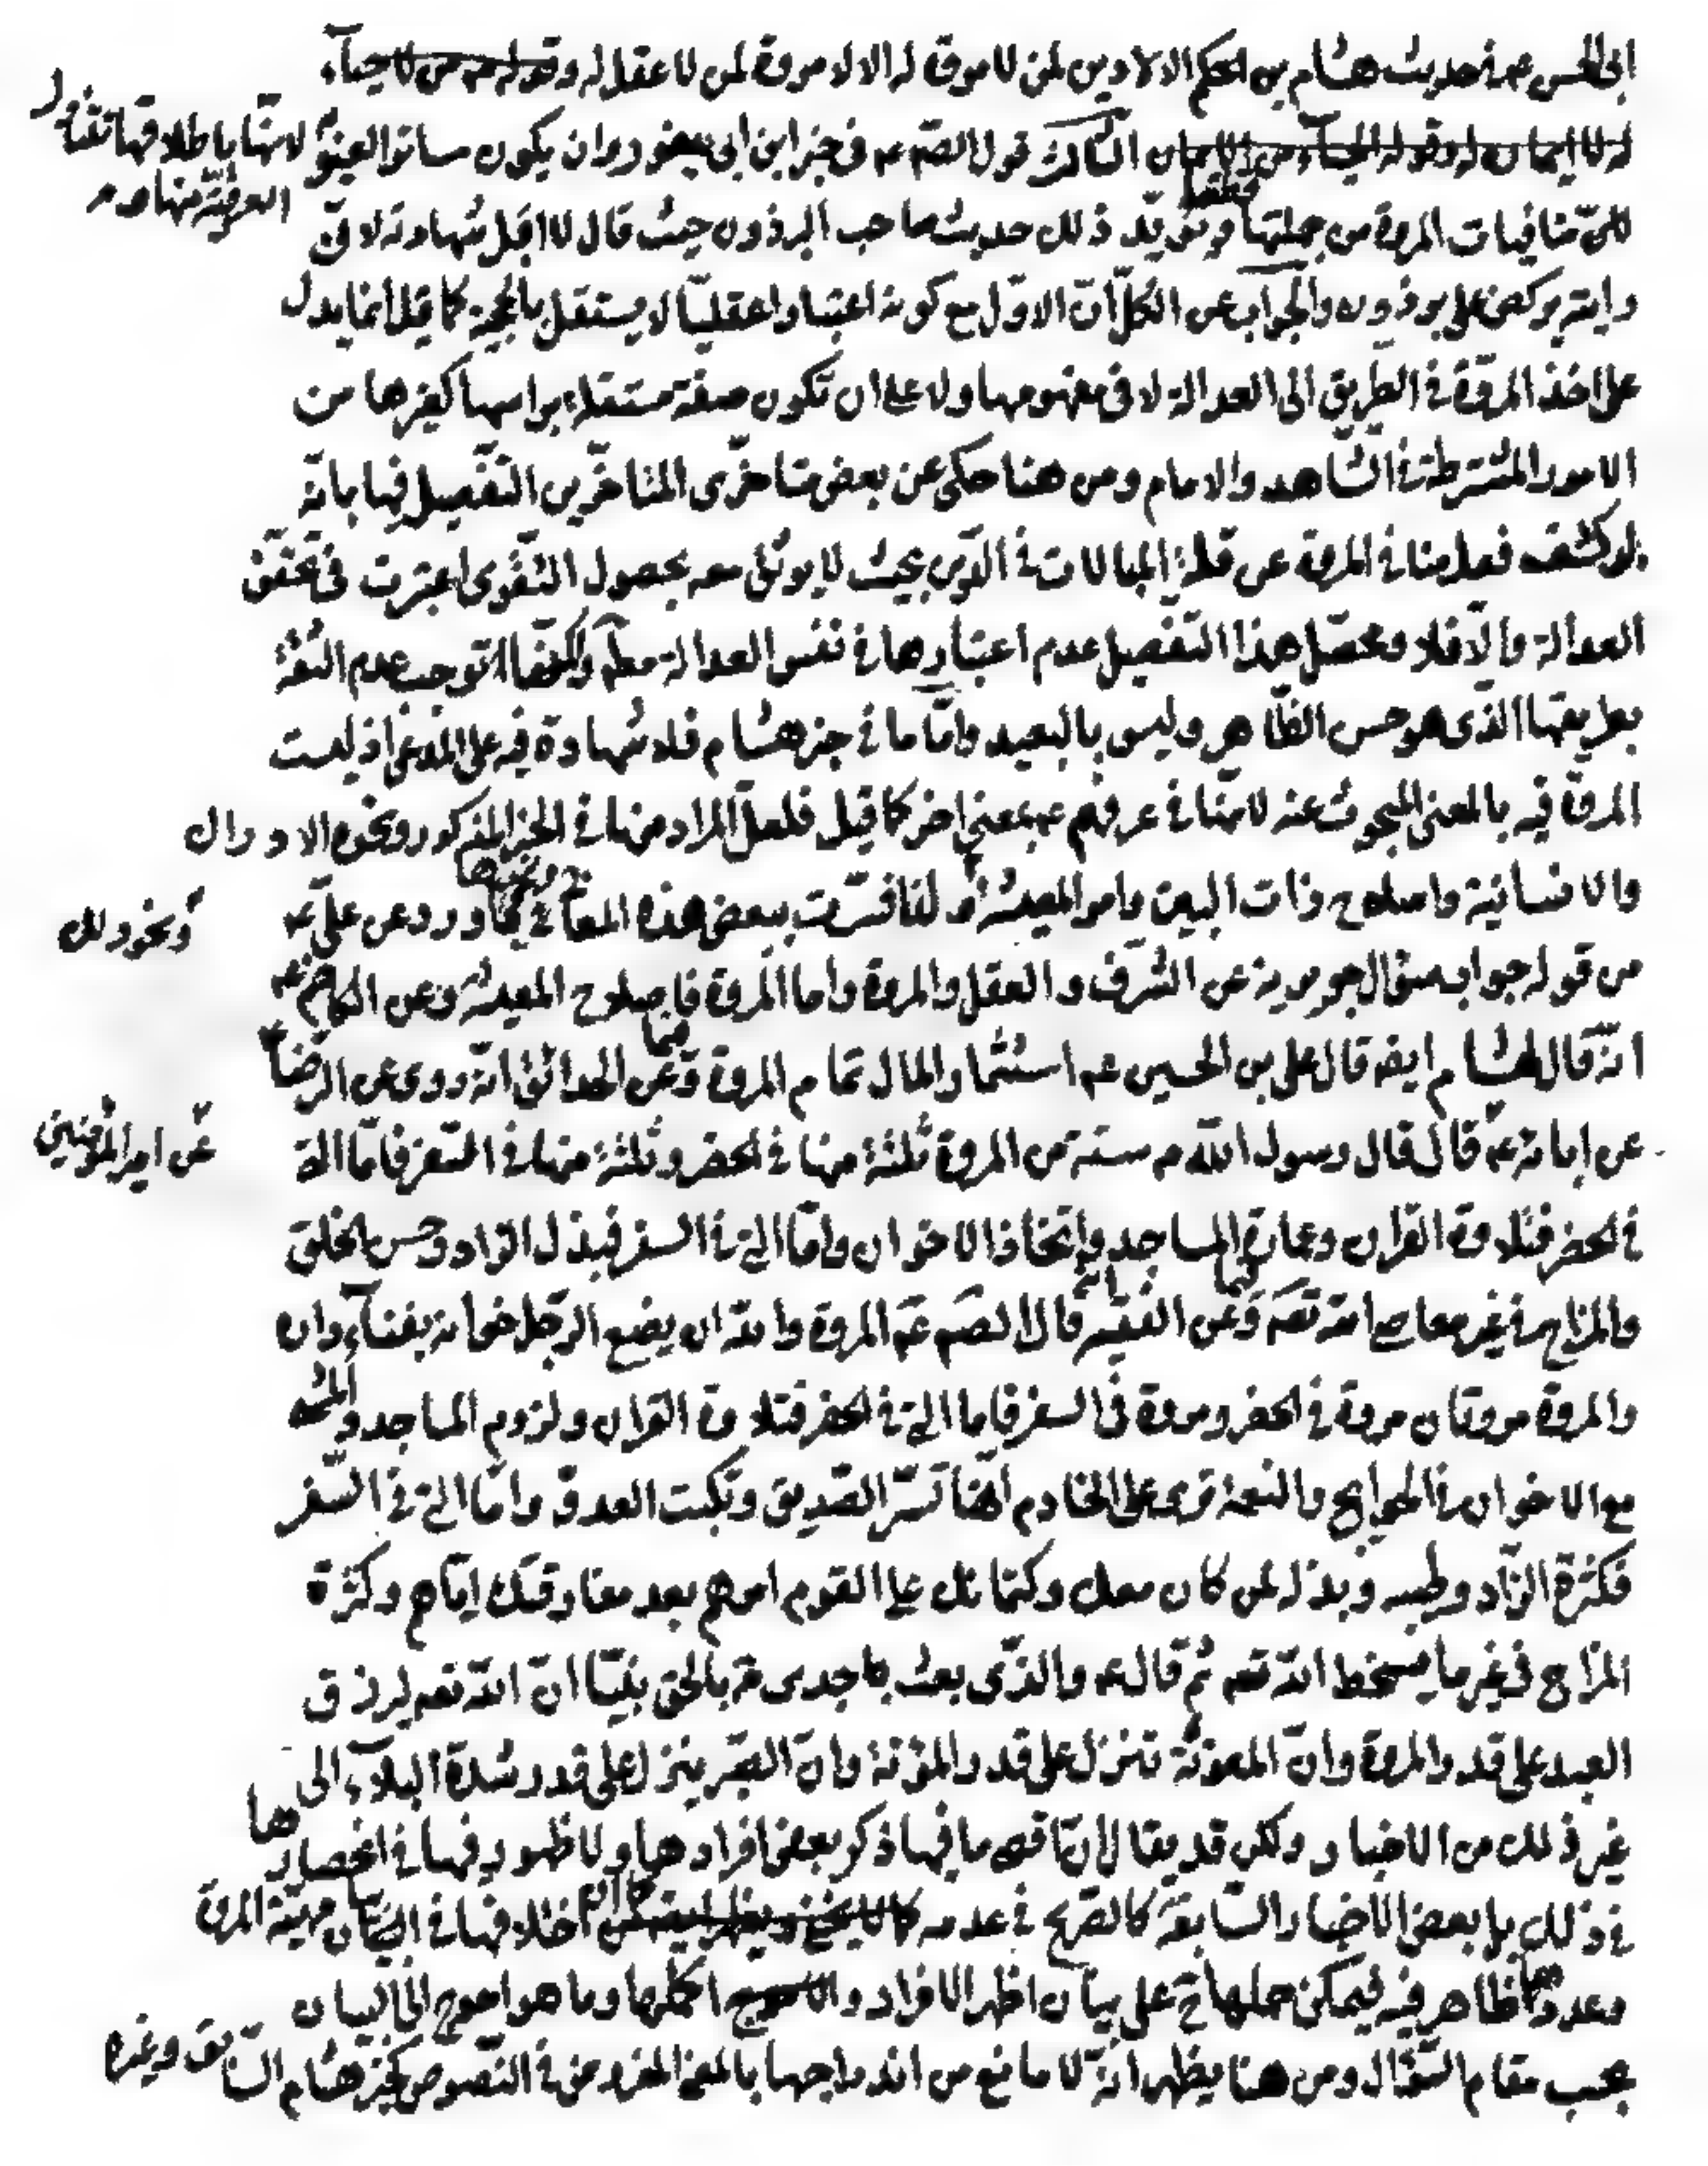 ابى الحسن عم فى حديث هشام بن الحكم الا لا دين لمن لا مروة له الا لا مروة لمن لا عقل له وقوله عم من لا حياء
له لا ايمان له وقوله الحياء من الايمان الثالث قول الصم عم فى خبر ابن ابى يعفور وان يكون ساتر العيوبه لانها باطلاقها تتناول
العرفية منها
كل منافيات المروة من جملتها ويؤيد ذلك حديث صاحب البرذون حيث قال لا اقبل شهادته لانى
رايته يركض على برذون والجواب عن الكل ان الاول مع كونه اعتبارا عقليا لا يستقل بالحجية كما قيل انما يدل
على اخذ المروة فى الطريق الى العدالة لا فى مفهومها ولا على ان تكون صفة مستقلة براسها كغيرها من
الامور المشترطة فى الشاهد والامام ومن هنا حكى عن بعض متاخرى المتاخرين التفصيل فيها بانه
لو كشف فعل منافى المروة عن قلة المبالات فى الدين بحيث لا يوثق معه بحصول التقوى اعتبرت فى تحقق
العدالة والا فلا ومحصل هذا التفصيل عدم اعتبارها فى نفس العدالة مطم ولكنها توجب عدم الثقة
بطريقها الذى هو حسن الظاهر وليس بالبعيد واما ما فى خبر هشام فلا شهادة فيه على المدعى اذ ليست
المروة فيه بالمعنى المبحوث عنه لانها فى عرفهم عم بمعنى اخر كما قيل فلعل المراد منها فى الخبر المذكور ونحوه الادراك
والانسانية واصلاح ذات البين وامر المعيشة لذا فسرت ببعض هذه المعانى ونحوها فيما ورد عن على عم
ونحو ذلك
من قوله جواب سؤال جويرية عن الشرف والعقل والمروة واما المروة فاصلاح المعيشة وعن الكاظم عم
انه قال لهشام ايضه قال على بن الحسين عم استثمار المال تمام المروة وعن الحدائق انه روى عن الرضا
عن ابائه عم قال قال رسول الله ص ستة من المروة ثلثة منها فى الحضر وثلثة منها فى السفر فاما التى
عن امير المؤمنين
فى الحضر فتلاوة القران وعمارة المساجد واتخاذ الاخوان واما التى فى السفر فبذل الزاد وحسن الخلق
والمزاح فى غير معاصى الله تعم وعن الفقيه قال الصم عم المروة والله ان يضع الرجل خوانه بفناء داره
والمروة مروتان مروة فى الحضر ومروة فى السفر فاما التى فى الحضر فتلاوة القران ولزوم المساجد والمشى
مع الاخوان فى الحوايج والنعمة ترى على الخادم انها تسر الصديق وتكبت العدو واما التى فى السفر
فكثرة الزاد وطيبه وبذله لمن كان معك وكتمانك على القوم امرهم بعد مفارقتك اياهم وكثرة
المزاح فى غير ما يسخط الله تعم ثم قال عم والذى بعث جدى ص بالحق نبيا ان الله تعم ليرزق
العبد على قدر المروة وان المعونة تنزل على قدر المؤنة وان الصبر ينزل على قدر شدة البلاء الى
غير ذلك من الاخبار ولكن قد يقال ان ما فيها ذكر بعض افرادها ولا ظهور فيها فى انحصارها
فى ذلك بل بعض الاخبار السابقة كالصريح فى عدمه كما ان اختلافها فى بيان مهية المروة
وعددها ظاهر فيه فيمكن حملها ح على بيان اظهر الافراد او اكملها وما هو احوج الى البيان
بحسب مقام السؤال ومن هنا يظهر انه لا مانع من اندراجها بالمعنى المفروض فى النصوص كخبر هشام السابق وغيره